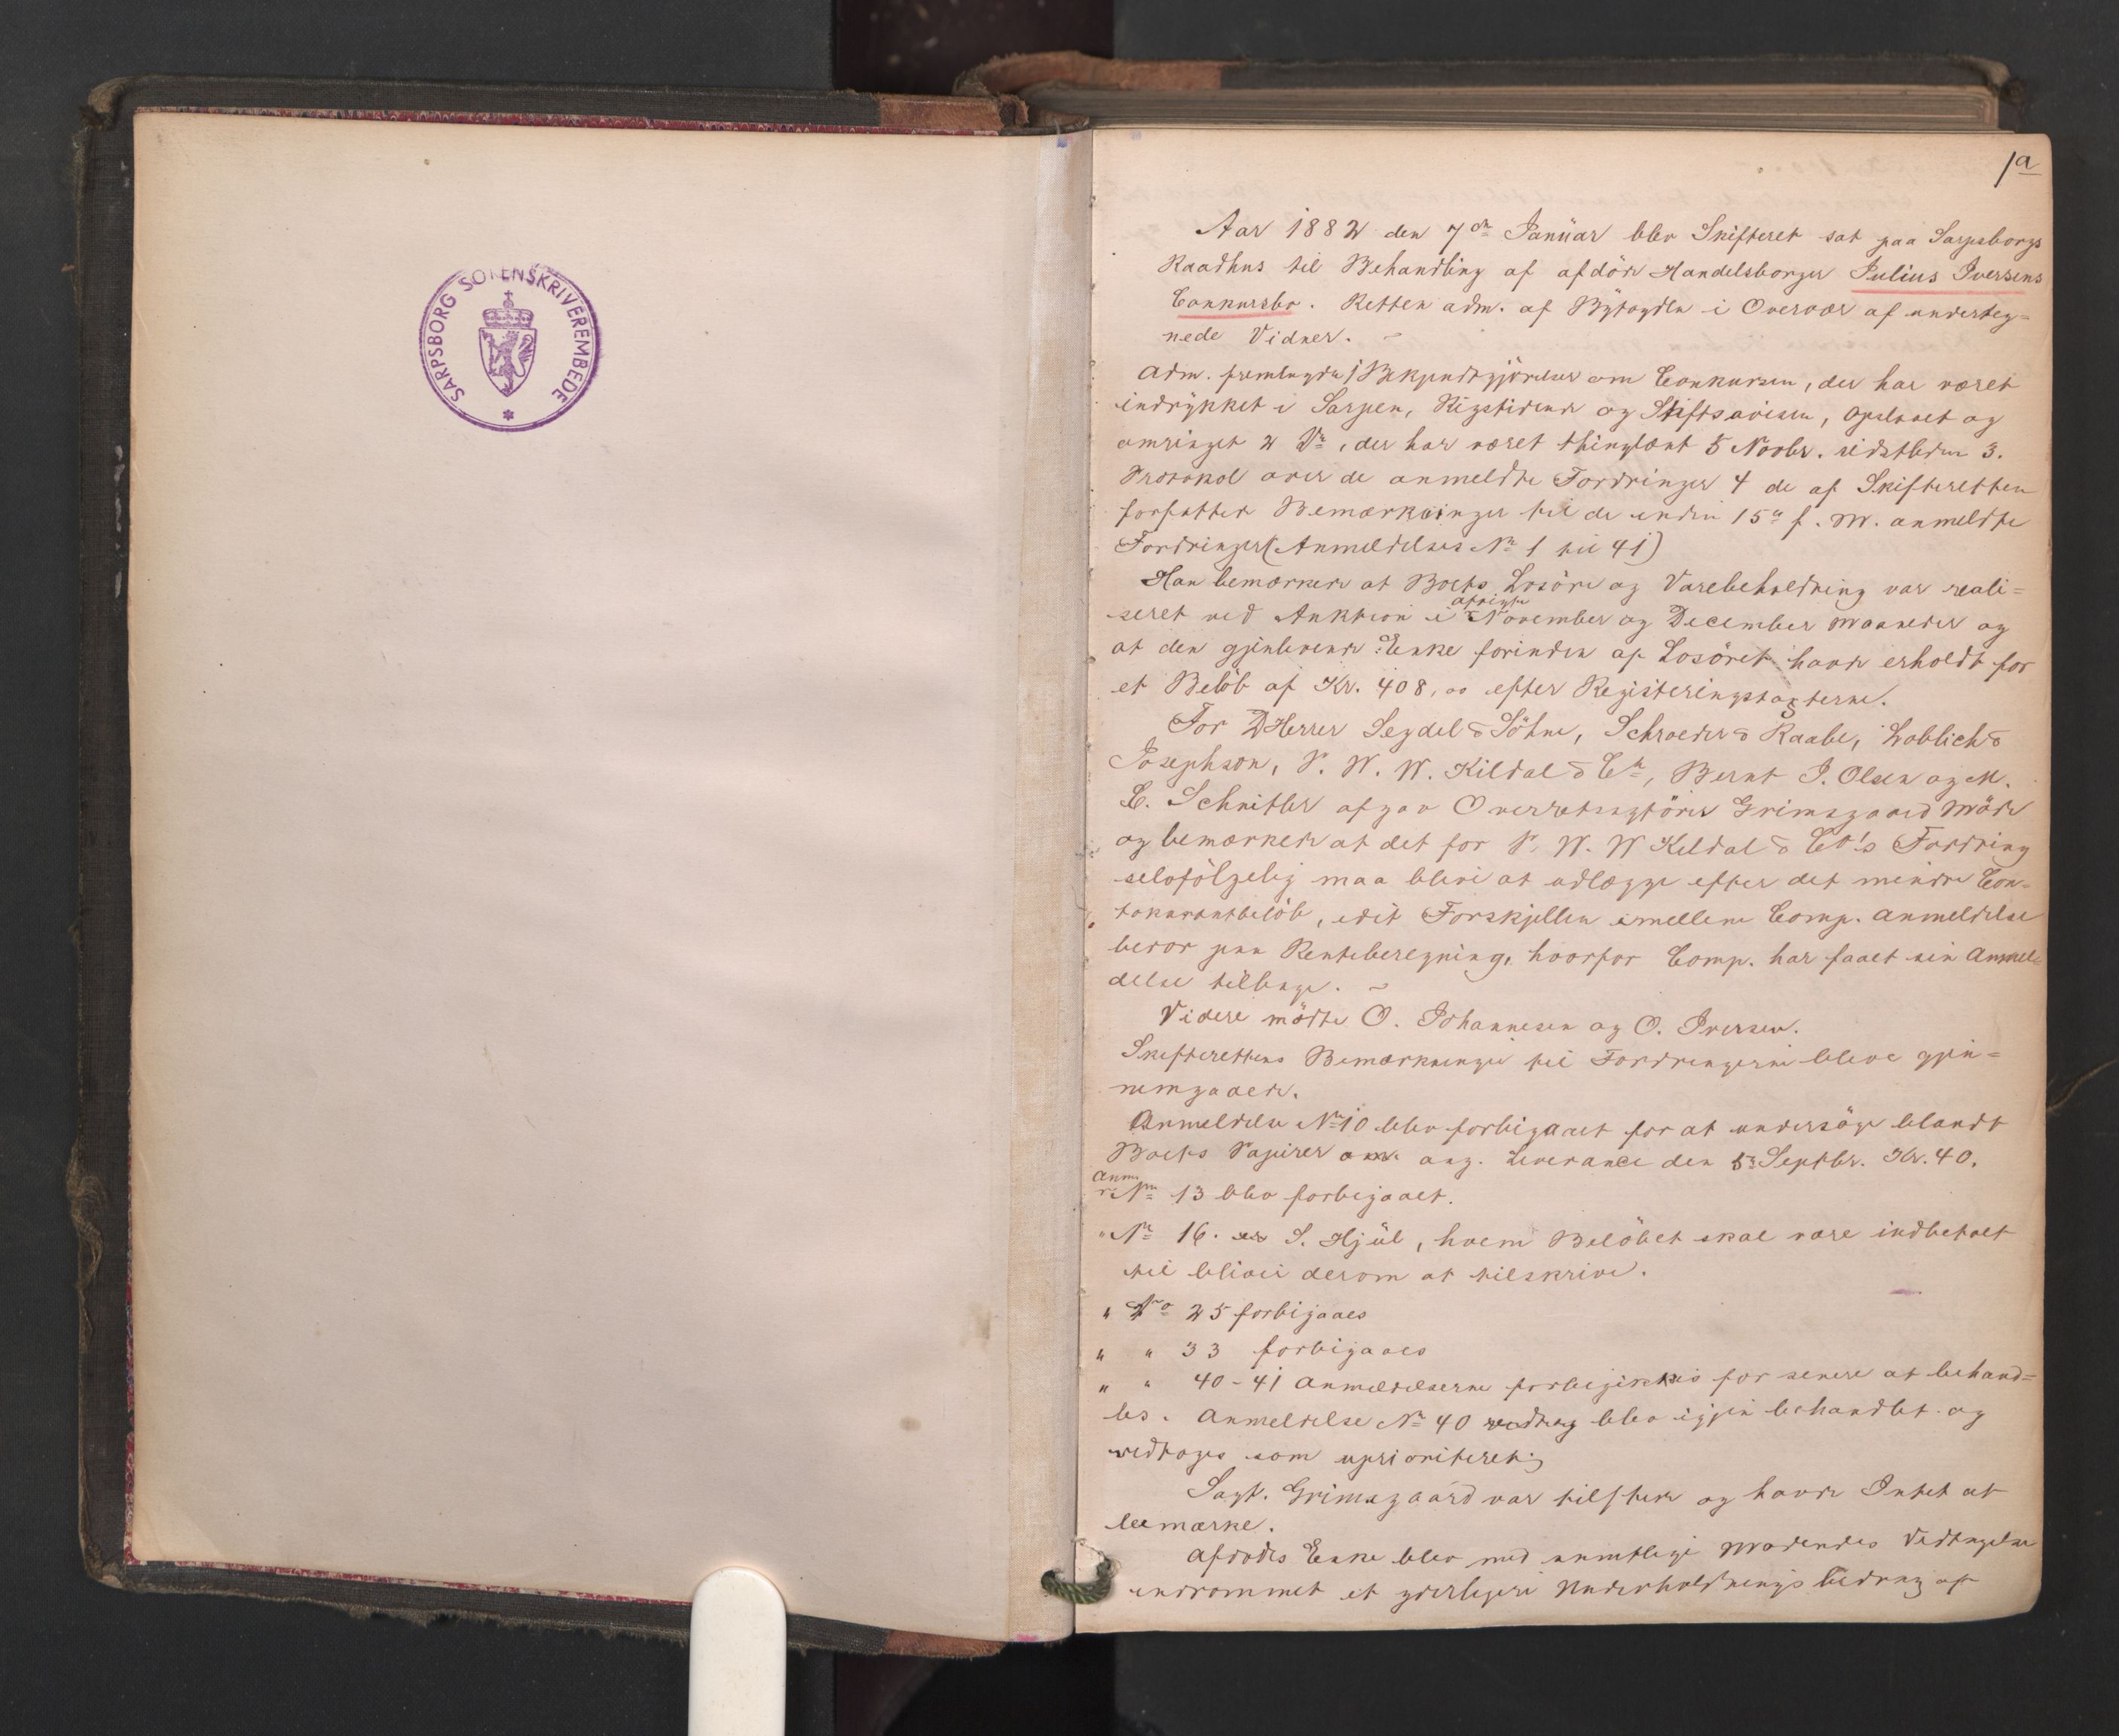 SARPSBORG SORENSKRIVEREMBEDE
1a
Aar 1882 den 7de Januar blev Skifteret sat paa Sarpsborgs
Raadhus til Behandling af afdöde Handelsborger Julius Iversens
Conkursbo. Retten adm. af Byfogden i Overvær af underteg=
nede Vidner. –
Adm. fremlagde 1 Bekjendtgjörelser om Conkursen, der har været
indrykket i Sarpen, Rigstidende og Stiftsavisen, opslaaet og
omringet 2 , der har været thinglæst 5 Novbr. sidstleden 3.
Protokol over de anmeldte Fordringer 4 de af Skifteretten
forfattede Bemærkninger til de inden 15de f. M. anmeldte
Fordringer (Anmeldelses No 1 til 41)
Han bemærkede at Boets Losöre og Varebeholdning var reali=
seret ved Auktion i afvigte November og December Maaneder og
at den gjenlevende Enke forinden af Losöret havde erholdt for
et Belöb af Kr. 408,00 efter Registeringstaxterne.
For DHerrer Seydel & Söhne, Schroeder & Raabe, Loblich &
Josephson, P. W. W. Kildal & Co, Bernt J. Olsen og M.
L. Schnitler afgav Overretssagförer Grimsgaard Möde
og bemærkede at det for P. W. W Kildal & Co's Fordring
selvfölgelig maa blive at udlægge efter det mindre Con-
tokurantbelöb, idet Forskjellen imellem Comp. Anmeldelse
beror paa Renteberegning, hvorfor Comp. har faaet sin Anmel=
delse tilbage. –
Videre mödte O. Johannesen og O. Iversen.
Skifterettens Bemærkninger til Fordringerne bleve gjen=
nemgaaede.
Anmeldelse No 10 blev forbigaaet for at undersöge blandt
Boets Papirer om ang. Leverance den 5 Septbr. Kr. 40.
Anm. No 13 blev forbigaaet.
" No 16. S. Hjül, hvem Belöbet skal være indbetalt
til bliver derom at tilskrive.
" No 25 forbigaaes
" " 33 forbigaaes
" " 40-41 Anmeldelserne forbigikkes for senere at behand=
les. Anmeldelse No 40 blev igjen behandlet og
vedtoges som uprioriteret.
Sagf. Grimsgaard var tilstede og havde Intet at
bemærke.
Afdödes Enke blev med samtlige Mödendes Vedtagelse
indrömmet et yderligere Underholdnings bidrag af